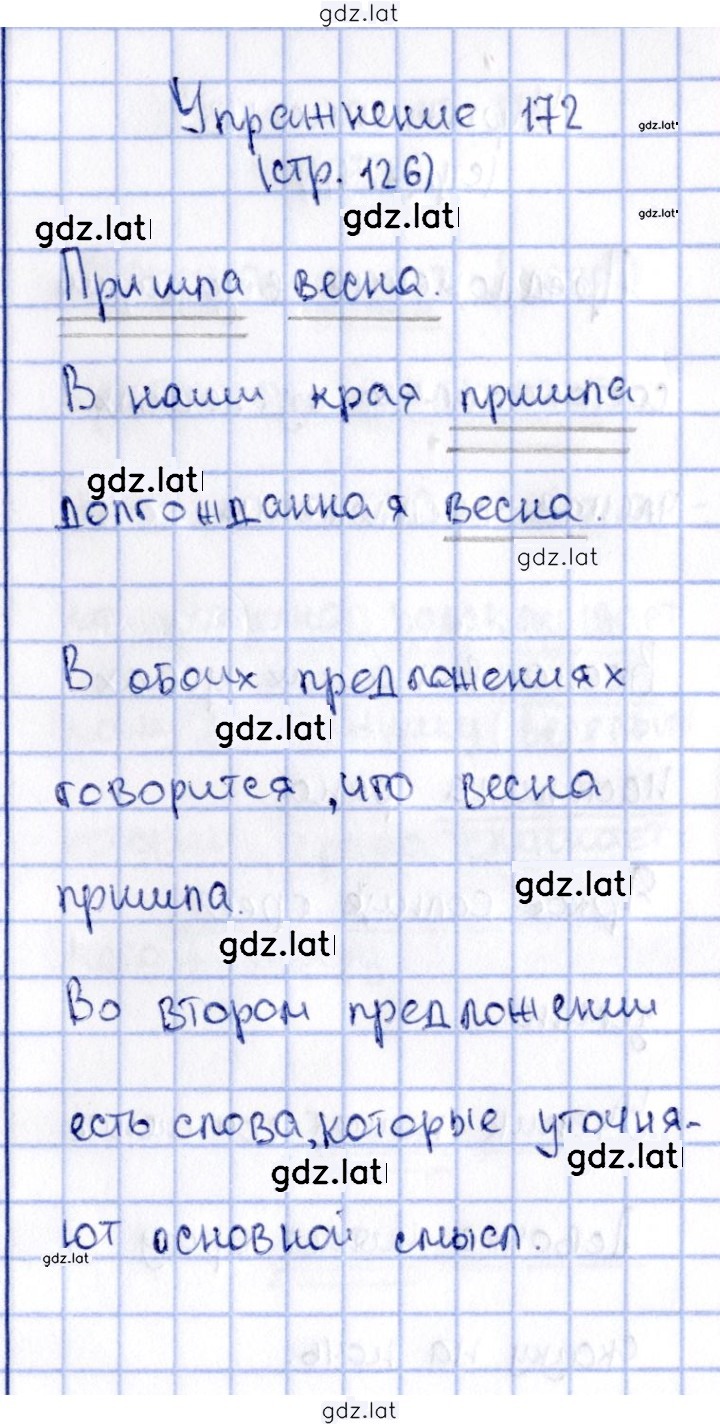 gdz.lat
Упражнение 172
gdz.lat
(стр. 126)
gdz.lat
gdz.lat
gdz.lat
Пришла весна.
В наши края пришла
gdz.lat
долгожданная весна.
gdz.lat
В обоих предложениях
gdz.lat
говорится, что весна
пришла.
gdz.lat
gdz.lat
Во втором предложении
есть слова, которые уточня-
gdz.lat
gdz.lat
ют основной смысл.
gdz.lat
gdz.lat